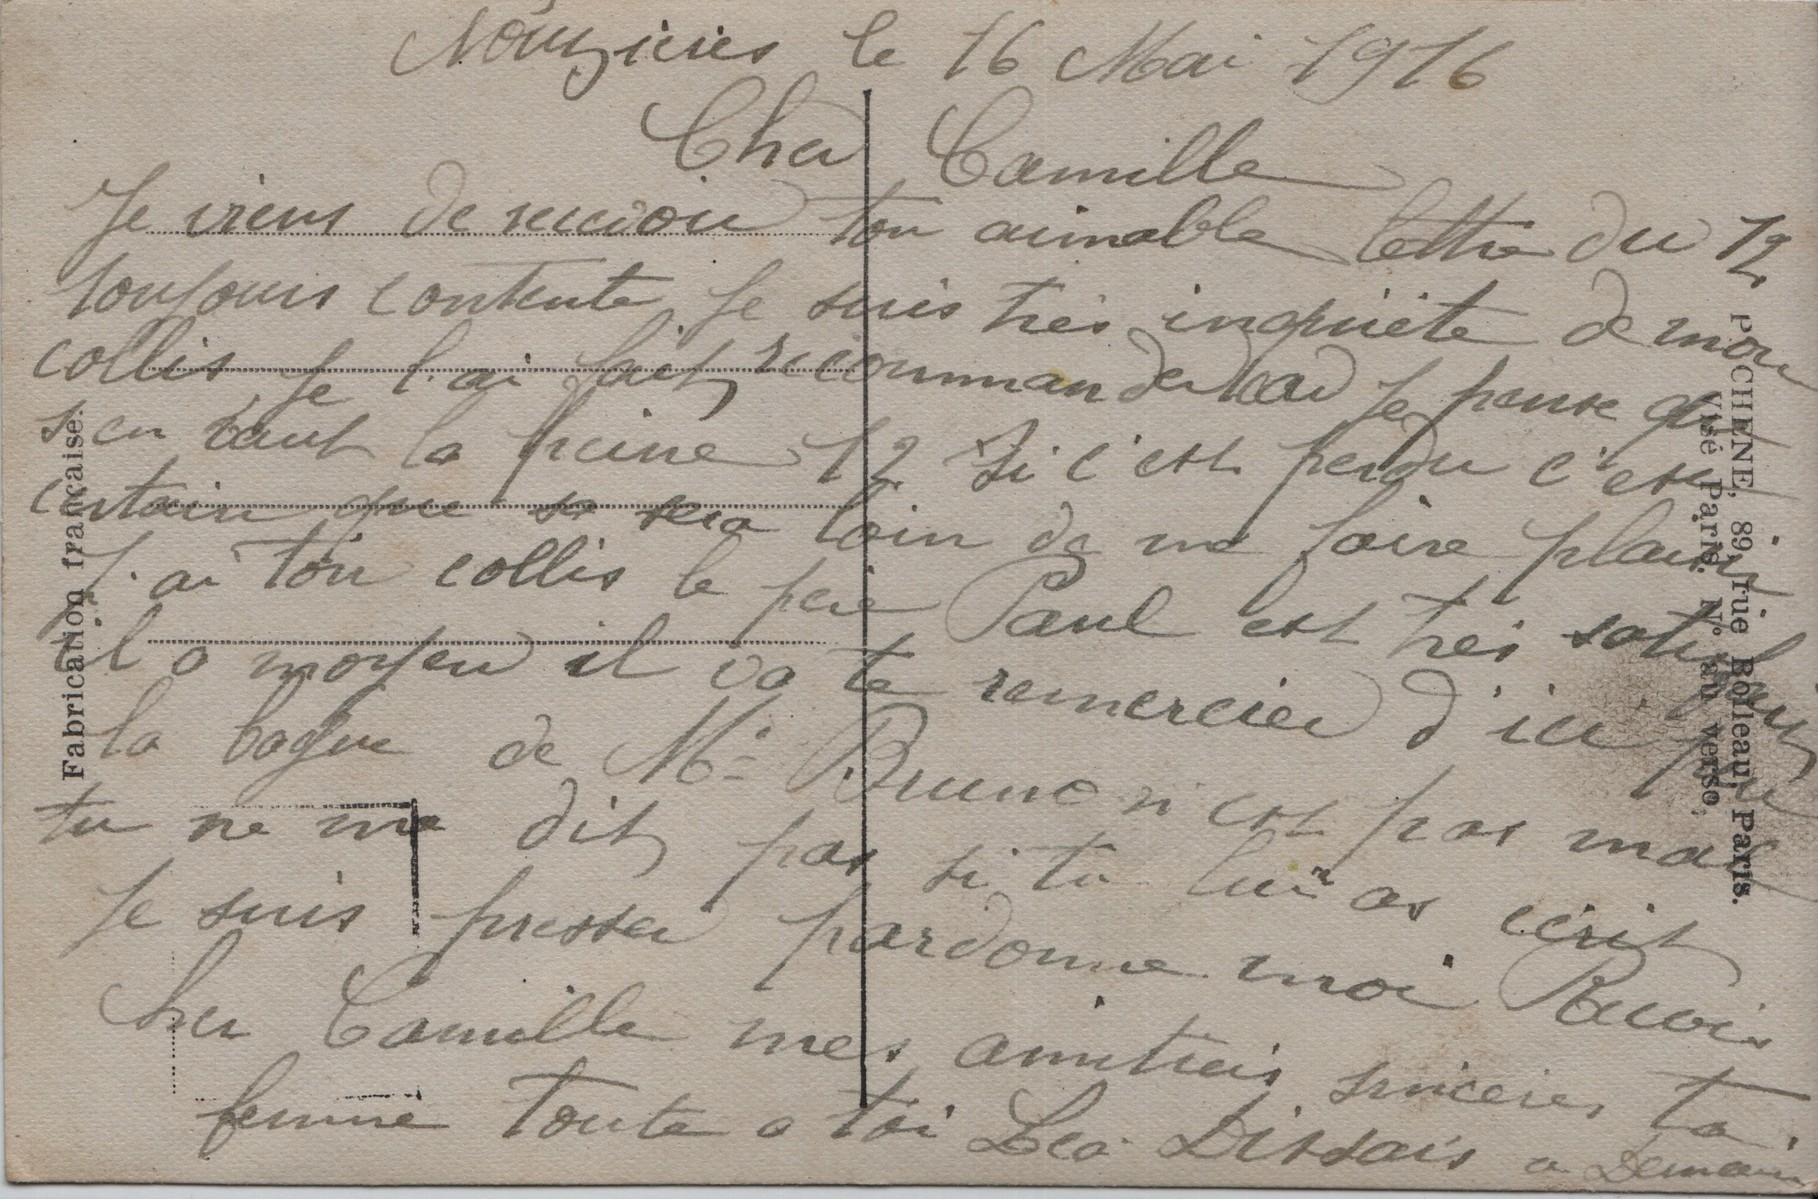 Nouziers le 16 Mai 1916
Cher Camille
Je viens de recevoir ton aimable lettre du 12
toujours contente, Je suis très inquiète de mon
collis, Je l'ai fait recommander car Je pense qu
s'en vaut la peine 12 Si c'est perdu c'est
certain que se sera loin de me faire plaisir
J'ai ton collis le père Paul est très satisfait
il a moyen il va te remercier d'ici peu
la bague de Mr Bruno n'est pas mal
tu ne me dit pas si tu lui as écrit
Je suis presser pardonne moi Recois
cher Camille mes amitiés sinceres ta
femme toute a toi Léa Dissais a Demain
Fabrication française.
POCHIENE, 89, rue Boileau, Paris.
Visé Paris. N° au verso.